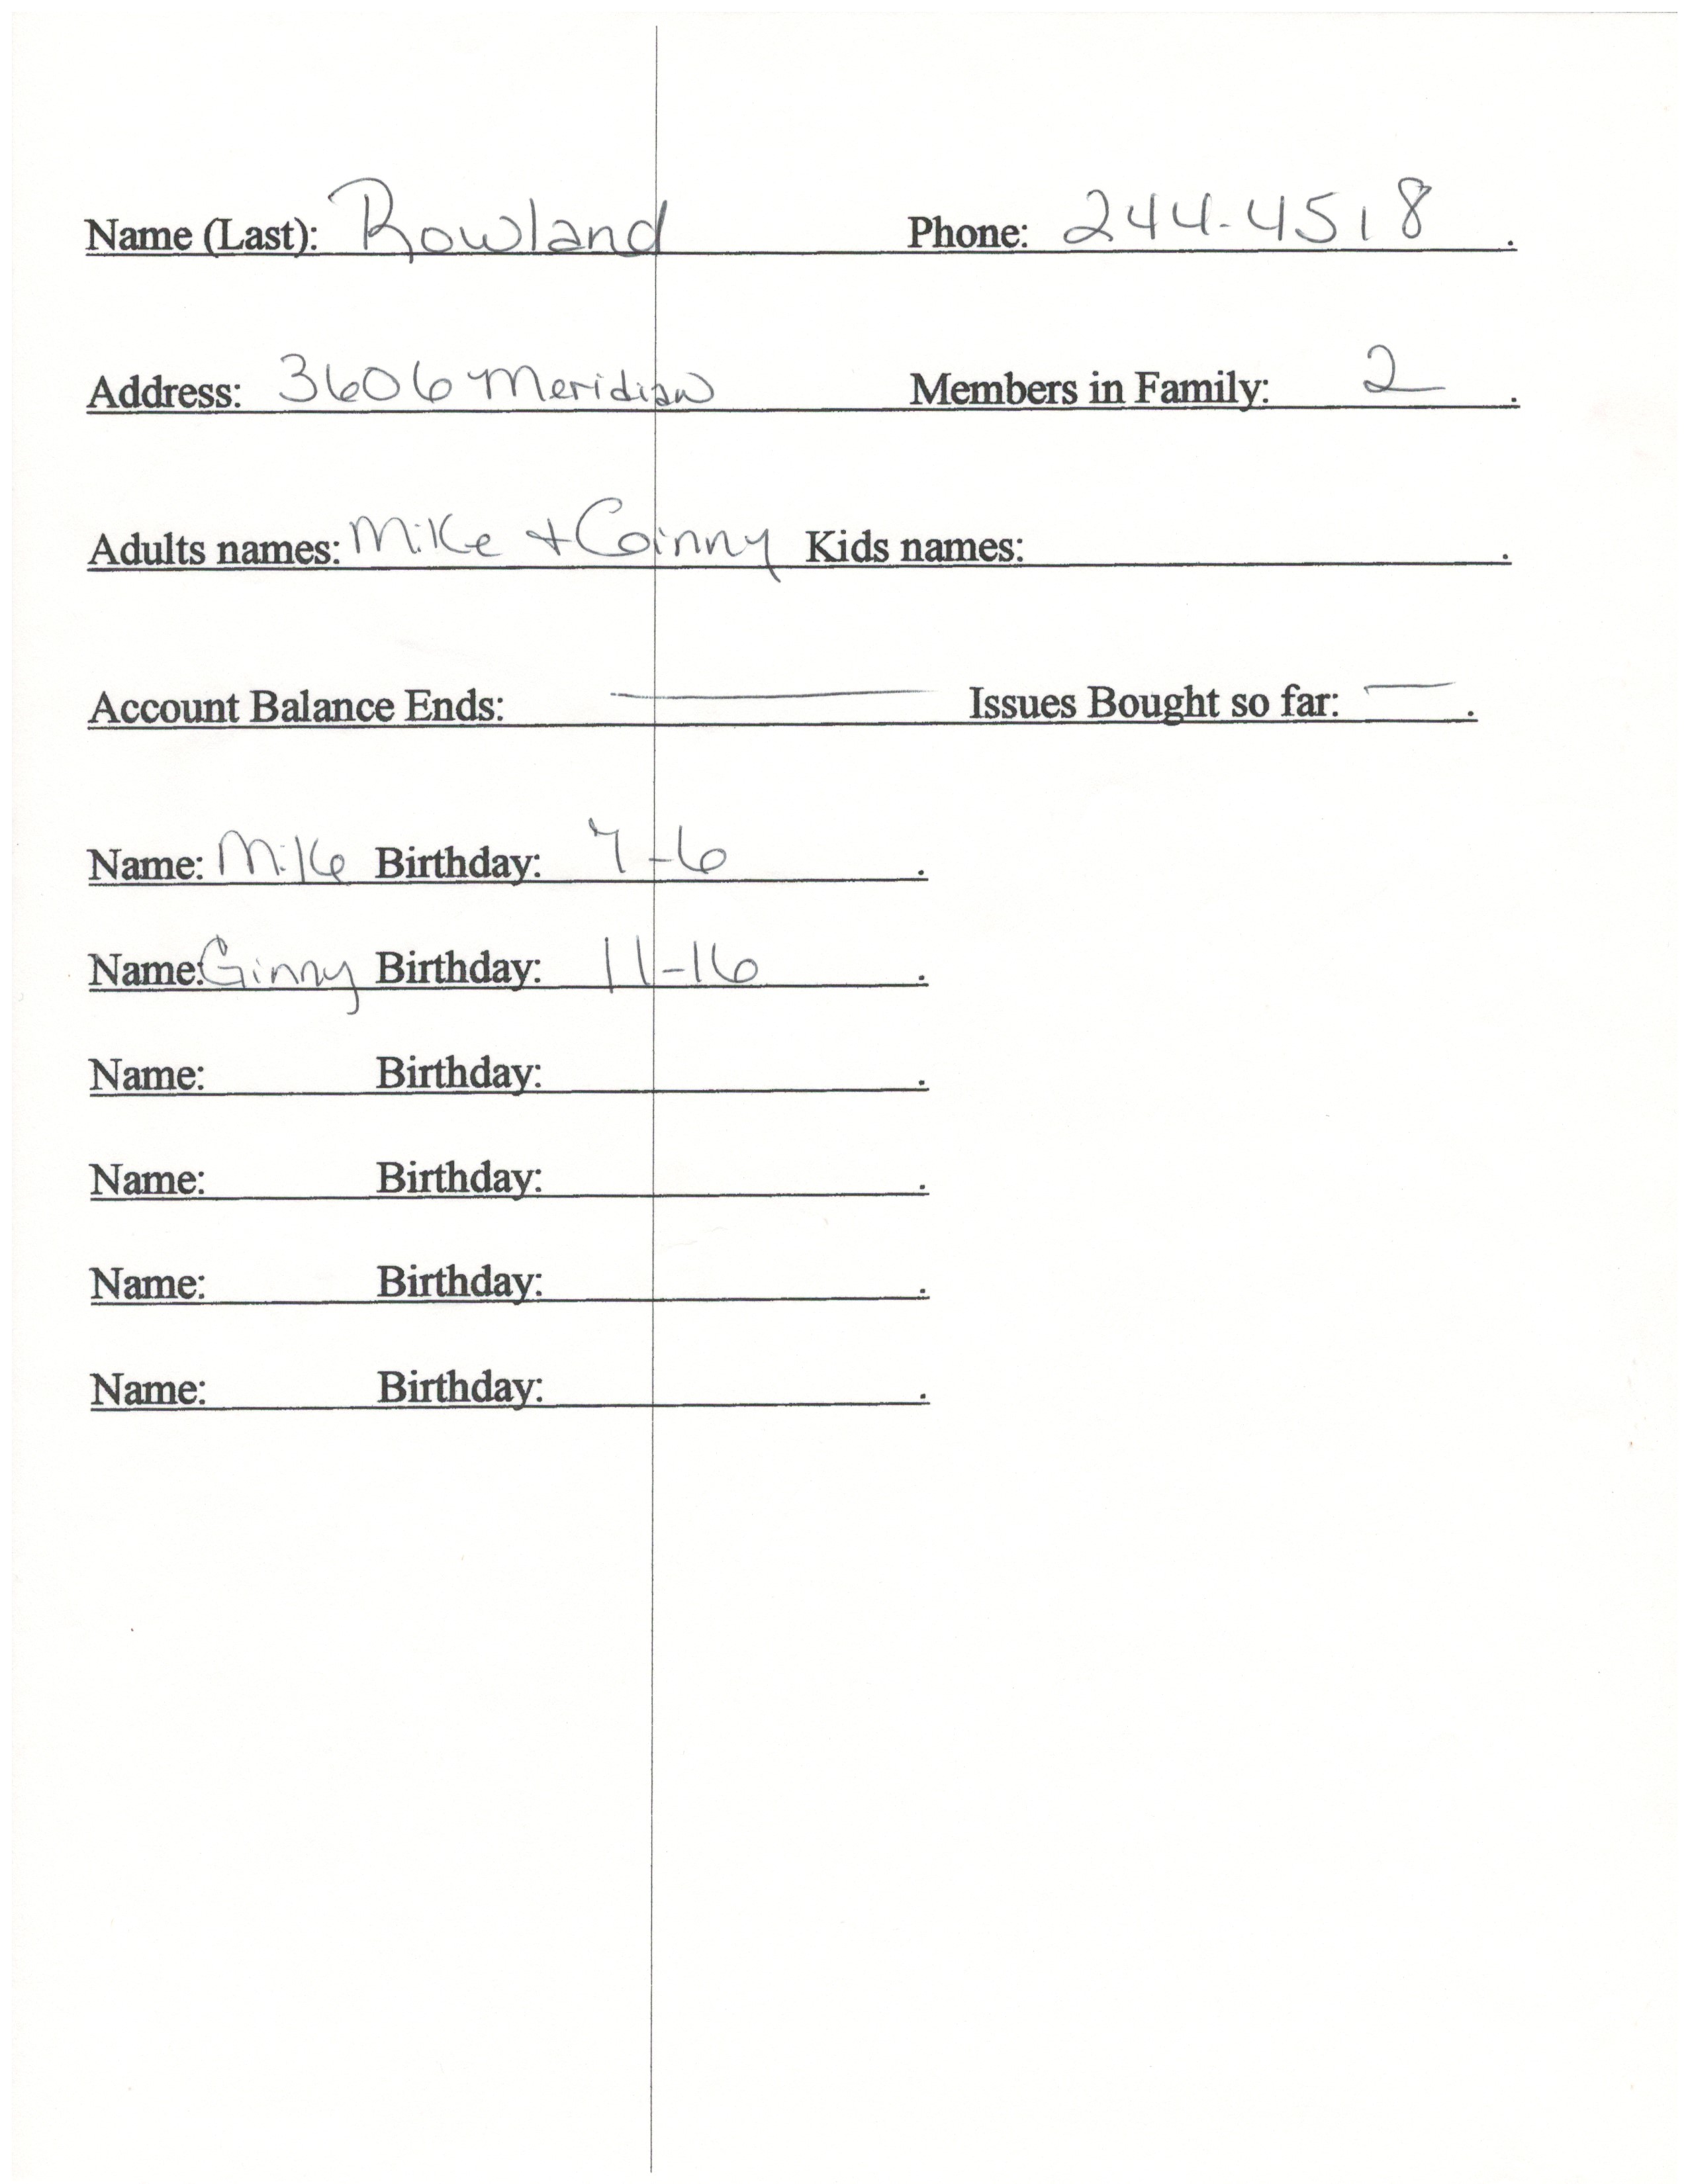 Name (Last): Rowland Phone: 244-4518.
Address: 3606 Meridian Members in Family: 2.
Adults names: Mike + Ginny Kids names: .
Account Balance Ends: — Issues Bought so far: —.
Name: Mike Birthday: 7-6.
Name: Ginny Birthday: 11-16.
Name: Birthday: .
Name: Birthday: .
Name: Birthday: .
Name: Birthday: .